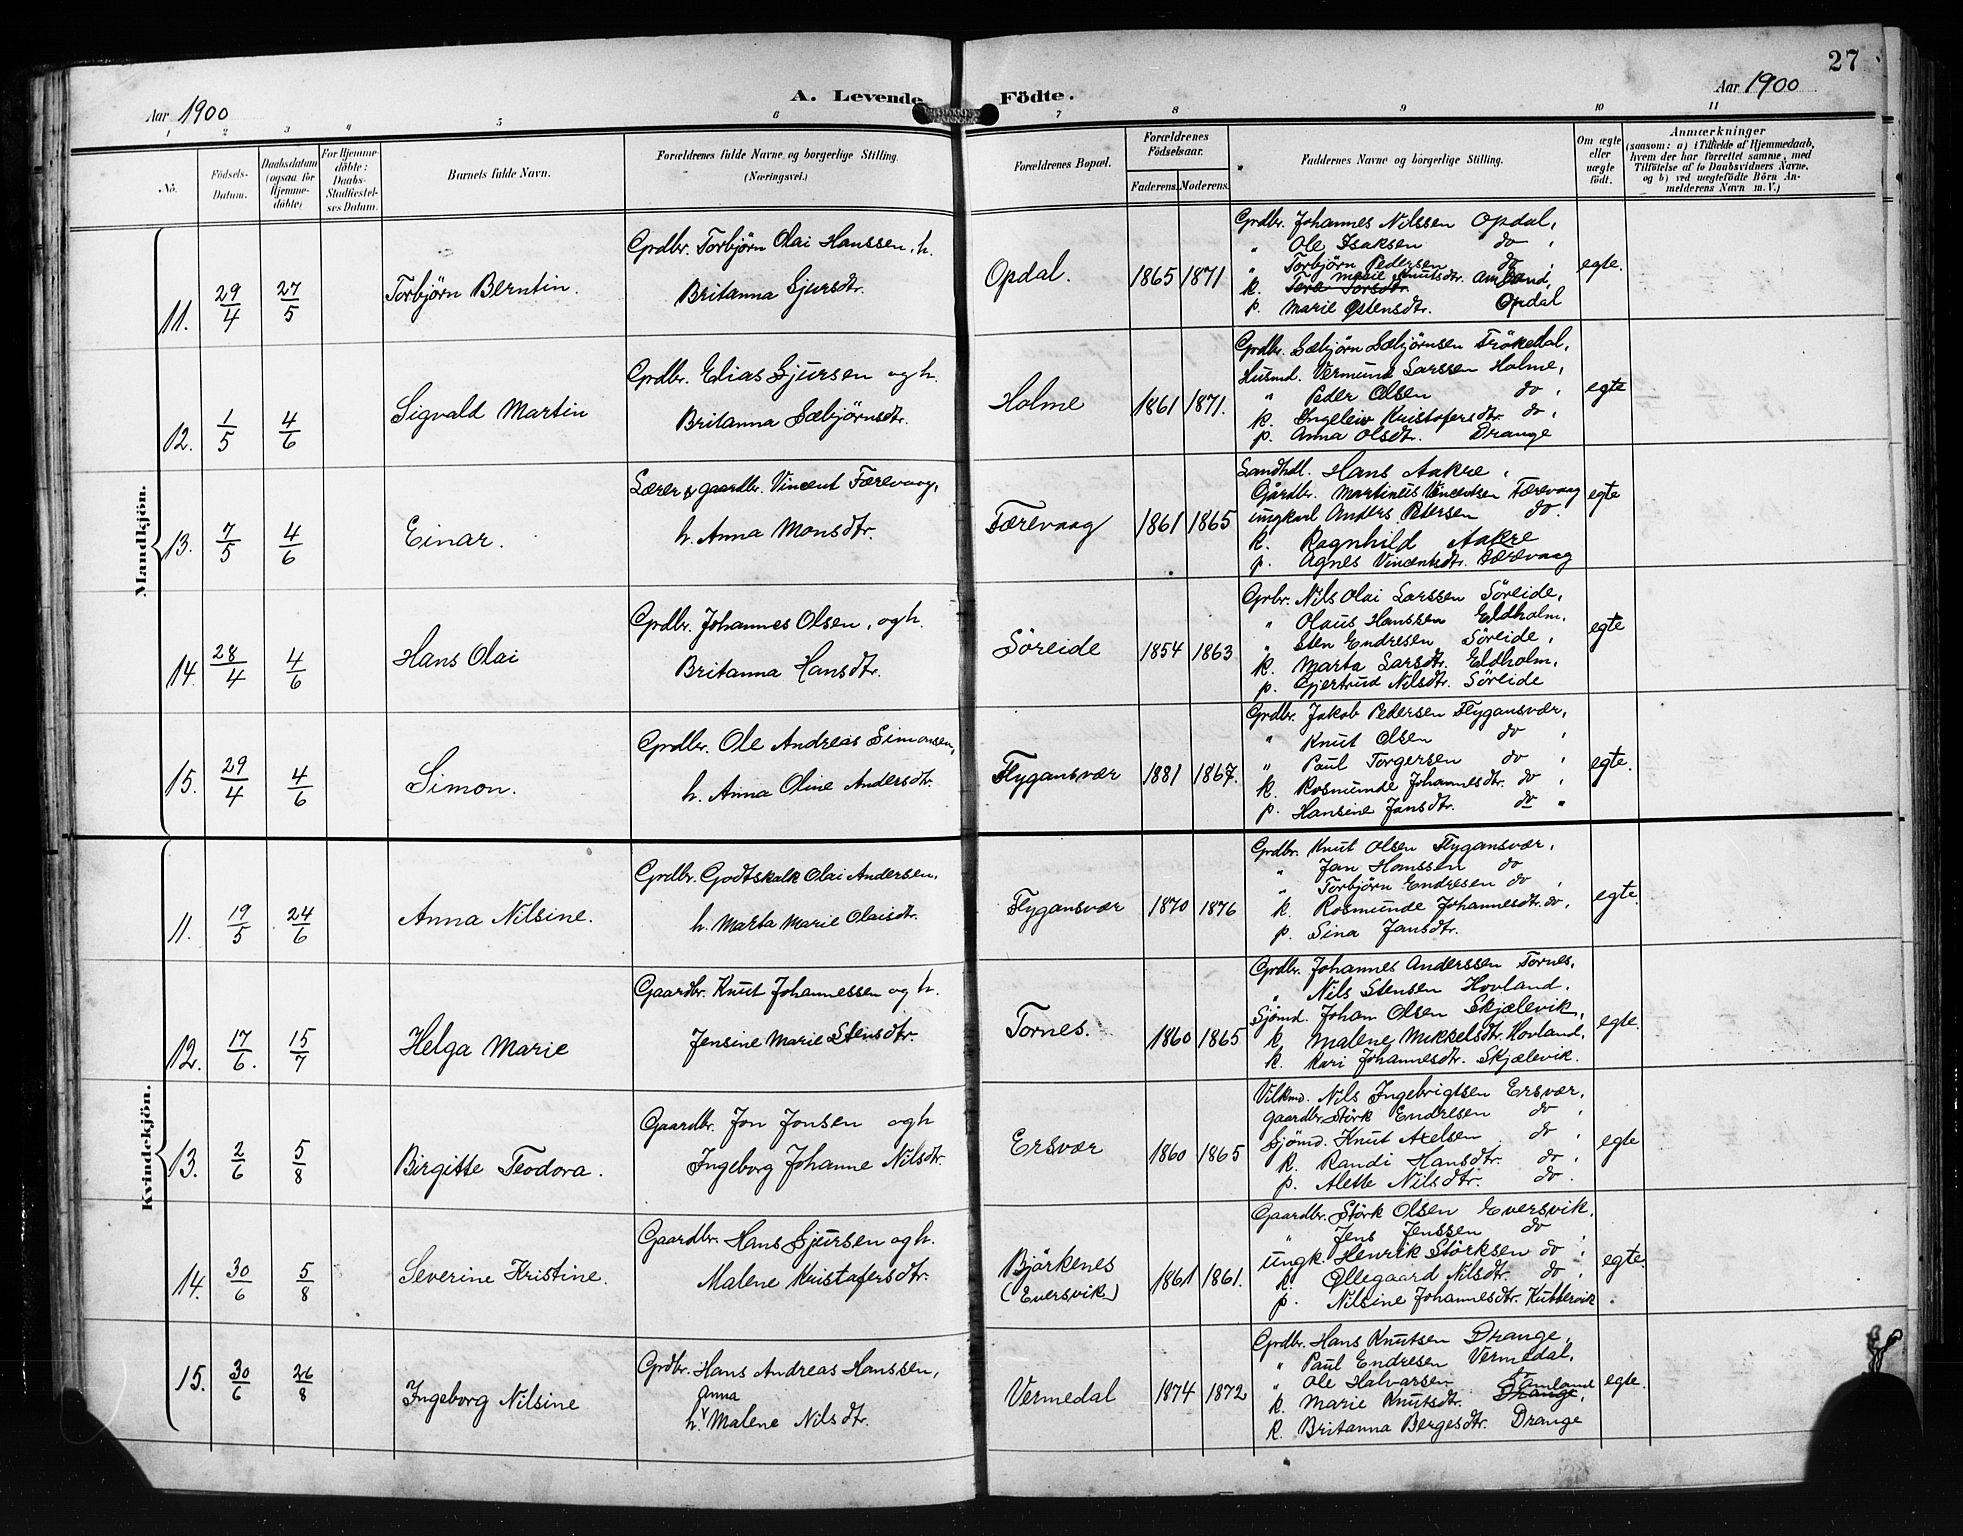 27
Aar 1900 A. Levende Födte. Aar 1900
1 2 3 4 5 6 7 8 9 10 11
No.
Födsels-
Datum.
Daabsdatum
(ogsaa for
Hjemme-
döbte)
For Hjemme-
döbte:
Daabs-
Stadfæstel-
ses Datum.
Barnets fulde Navn.
Forældrenes fulde Navne og borgerlige Stilling.
(Næringsvei.)
Forældrenes Bopæl.
Forældrenes
Födselsaar.
Faderens. Moderens.
Faddernes Navne og borgerlige Stilling.
Om ægte
eller
uægte
födt.
Anmærkninger
(saasom: a) i Tilfælde af Hjemmedaab,
hvem der har forrettet samme, med
Tilföielse af to Daabsvidners Navne,
og b) ved uægtefödte Börn An-
melderens Navn m. V.)
Mandkjön.
11. 29/4 27/5 Torbjørn Berntin.
Grdbr. Torbjørn Olai Hanssen, h.
Britanna Sjursdtr.
Opdal. 1865 1871
Grdbr. Johannes Nilssen Opdal,
" Ole Isaksen do,
" Torbjørn Pedersen do,
k. Marie Knutsdtr.
p. Marie Østensdtr. Opdal
egte.
12. 1/5 4/6 Sigvald Martin
Grdbr. Elias Sjursen og h.
Britanna Sæbjørnsdtr.
Holme 1861 1871.
Grdbr. Sæbjørn Sæbjørnsen Trökedal,
Husmd. Vermund Larssen Holme,
" Peder Olsen do,
k. Ingeleiv Kristofersdtr. do,
p. Anna Olsdtr. Drange
egte
13. 7/5 4/6 Einar.
Lærer & gaardbr. Vincent Færevaag,
h. Anna Monsdtr.
Færevaag 1861 1865
Landhdl. Hans Aakre,
Gårdbr. Martineus Vincentsen Færevaag
ungkarl Anders Petersen do.
k. Ragnhild Aakre
p. Agnes Vincentsdtr. Færevaag
egte
14. 28/4 4/6 Hans Olai
Grdbr. Johannes Olsen, og h.
Britanna Hansdtr.
Söreide 1854 1863
Grbr. Nils Olai Larssen Söreide,
" Olaus Hanssen Eldholm,
" Sten Endresen Söreide,
k. Marta Larsdtr. Eldholm,
p. Gjertrud Nilsdtr. Söreide
egte
15. 29/4 4/6 Simon.
Grdbr. Ole Andreas Simonsen,
h. Anna Oline Andersdtr.
Flygansvær 1881 1867.
Grdbr. Jakob Pedersen Flygansvær,
" Knut Olsen do,
" Paul Torgersen do,
k. Rosmunde Johannesdtr. do,
p. Hansine Jansdtr. do "
egte.
Kvindekjön.
11. 19/5 24/6 Anna Nilsine.
Grdbr. Godtskalk Olai Andersen,
h. Marta Marie Olaisdtr.
Flygansvær 1870 1876
Grdbr. Knut Olsen Flygansvær,
" Jan Hanssen do
" Torbjörn Endresen do,
k. Rosmunde Johannesdtr. do,
p. Sina Jansdtr.
egte.
12. 17/6. 15/7 Helga Marie
Gaardbr. Knut Johannessen og h.
Jensine Marie Stensdtr.
Tornes. 1860 1865
Grdbr. Johannes Anderssen Tornes,
" Nils Stensen Hovland,
Sjömd. Johan Olsen Skjælevik,
k. Malene Mikkelsdtr. Hovland,
k. Kari Johannesdtr. Skjælevik.
egte.
13. 2/6 5/8 Birgitte Teodora.
Gaardbr. Jon Jonsen og h
Ingeborg Johanne Nilsdtr.
Ersvær 1860 1865
Vilkmd. Nils Ingebrigtsen Ersvær,
gaardbr. Störk Endresen do,
Sjömd. Knut Axelsen do,
k. Randi Hansdtr. do,
p. Alette Nilsdtr. do.
egte
14. 30/6 5/8 Severine Kristine.
Gaardbr. Hans Sjursen og h.
Malene Kristofersdtr.
Björkenes
(Eversvik) 1861 1861.
Gaardbr. Störk Olsen Eversvik,
" Jens Jenssen do,
ungk. Henrik Störksen do,
k. Øllegaard Nilsdtr. do,
p. Nilsine Johannesdtr. Kuttervik.
egte.
15. 30/6 26/8 Ingeborg Nilsine
Grdbr. Hans Andreas Hanssen,
anna
h. Malene Nilsdtr.
Vermedal 1874 1872
Grdbr. Hans Knutsen Drange,
" Paul Endresen Vermedal,
" Ole Halvarsen
k. Marie Knutsdtr. Drange,
k. Britanna Bergesdtr. Drange
egte.